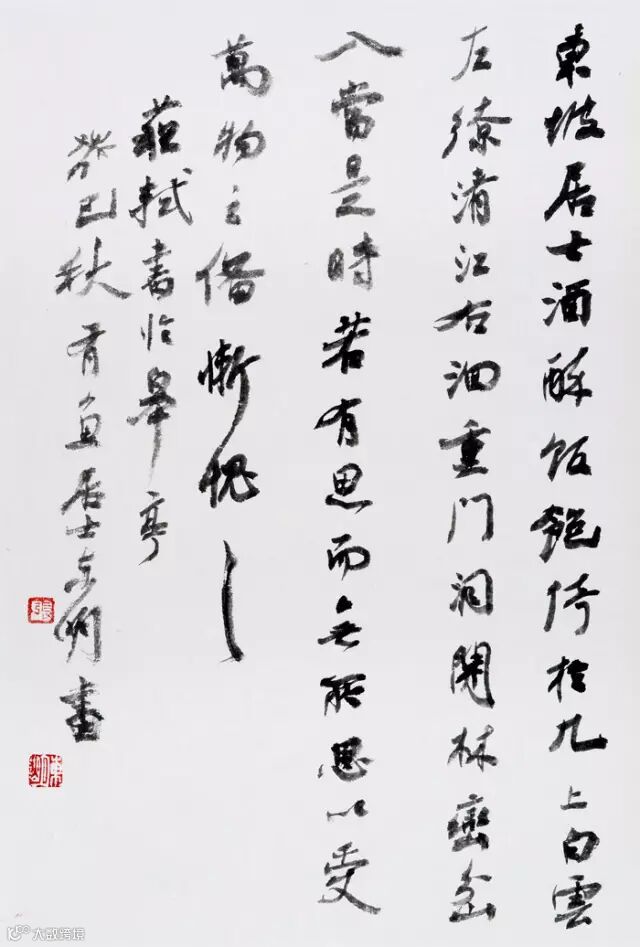 東坡居士酒酥飯飽倚於几上白雲
左繚清江右洄重門洞開林巒岔
入當是時若有思而無所思以受
萬物之俻慚愧〻
蘇軾書臨皋亭
癸巳秋有魚居士东明書
大数跨境